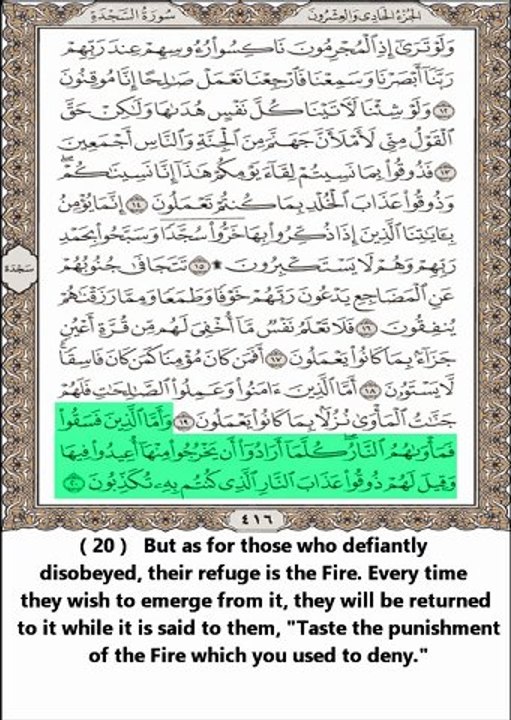 الجزء الحادي والعشرون
سورة السجدة
وَلَوْ تَرَىٰٓ إِذِ ٱلْمُجْرِمُونَ نَاكِسُوا۟ رُءُوسِهِمْ عِندَ رَبِّهِمْ
رَبَّنَآ أَبْصَرْنَا وَسَمِعْنَا فَٱرْجِعْنَا نَعْمَلْ صَٰلِحًا إِنَّا مُوقِنُونَ
١٢ وَلَوْ شِئْنَا لَءَاتَيْنَا كُلَّ نَفْسٍ هُدَىٰهَا وَلَٰكِنْ حَقَّ
ٱلْقَوْلُ مِنِّى لَأَمْلَأَنَّ جَهَنَّمَ مِنَ ٱلْجِنَّةِ وَٱلنَّاسِ أَجْمَعِينَ
١٣ فَذُوقُوا۟ بِمَا نَسِيتُمْ لِقَآءَ يَوْمِكُمْ هَٰذَآ إِنَّا نَسِينَٰكُمْ ۖ
وَذُوقُوا۟ عَذَابَ ٱلْخُلْدِ بِمَا كُنتُمْ تَعْمَلُونَ ١٤ إِنَّمَا يُؤْمِنُ
بِـَٔايَٰتِنَا ٱلَّذِينَ إِذَا ذُكِّرُوا۟ بِهَا خَرُّوا۟ سُجَّدًا وَسَبَّحُوا۟ بِحَمْدِ
رَبِّهِمْ وَهُمْ لَا يَسْتَكْبِرُونَ ۩ ١٥ تَتَجَافَىٰ جُنُوبُهُمْ
سجدة
عَنِ ٱلْمَضَاجِعِ يَدْعُونَ رَبَّهُمْ خَوْفًا وَطَمَعًا وَمِمَّا رَزَقْنَٰهُمْ
يُنفِقُونَ ١٦ فَلَا تَعْلَمُ نَفْسٌ مَّآ أُخْفِىَ لَهُم مِّن قُرَّةِ أَعْيُنٍ
جَزَآءًۢ بِمَا كَانُوا۟ يَعْمَلُونَ ١٧ أَفَمَن كَانَ مُؤْمِنًا كَمَن كَانَ فَاسِقًا ۚ
لَّا يَسْتَوُۥنَ ١٨ أَمَّا ٱلَّذِينَ ءَامَنُوا۟ وَعَمِلُوا۟ ٱلصَّٰلِحَٰتِ فَلَهُمْ
جَنَّٰتُ ٱلْمَأْوَىٰ نُزُلًۢا بِمَا كَانُوا۟ يَعْمَلُونَ ١٩ وَأَمَّا ٱلَّذِينَ فَسَقُوا۟
فَمَأْوَىٰهُمُ ٱلنَّارُ ۖ كُلَّمَآ أَرَادُوٓا۟ أَن يَخْرُجُوا۟ مِنْهَآ أُعِيدُوا۟ فِيهَا
وَقِيلَ لَهُمْ ذُوقُوا۟ عَذَابَ ٱلنَّارِ ٱلَّذِى كُنتُم بِهِۦ تُكَذِّبُونَ ٢٠
٤١٦
( 20 ) But as for those who defiantly
disobeyed, their refuge is the Fire. Every time
they wish to emerge from it, they will be returned
to it while it is said to them, "Taste the punishment
of the Fire which you used to deny."